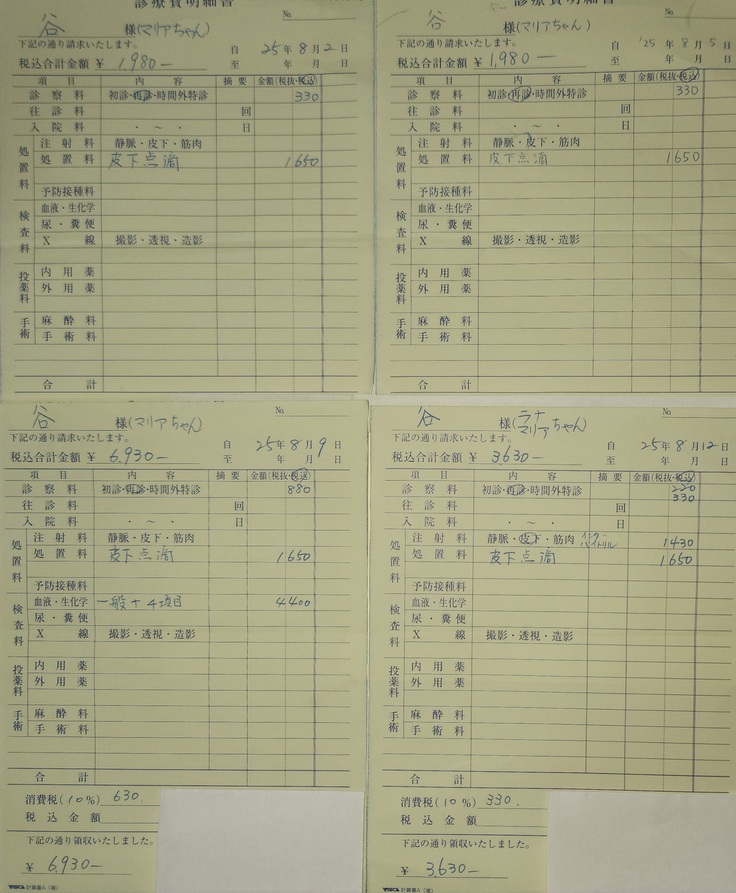 診療費明細書
№
谷 様(マリアちゃん)
下記の通り請求いたします。
自 25年8月2日
税込合計金額 ¥ 1,980― 至 年 月 日
項目 内容 摘要 金額(税抜・税込)
診察料 初診・再診・時間外特診 330
往診料 回
入院料 ・ ～ ・ 日
処置料 注射料 静脈・皮下・筋肉
処置料 皮下点滴 1650
予防接種料
検査料 血液・生化学
尿・糞便
X線 撮影・透視・造影
投薬料 内用薬
外用薬
手術 麻酔料
手術料
合計
診療費明細書
№
谷 様(マリアちゃん)
下記の通り請求いたします。
自 '25年8月5日
税込合計金額 ¥ 1,980― 至 年 月 日
項目 内容 摘要 金額(税抜・税込)
診察料 初診・再診・時間外特診 330
往診料 回
入院料 ・ ～ ・ 日
処置料 注射料 静脈・皮下・筋肉
処置料 皮下点滴 1650
予防接種料
検査料 血液・生化学
尿・糞便
X線 撮影・透視・造影
投薬料 内用薬
外用薬
手術 麻酔料
手術料
合計
№
谷 様(マリアちゃん)
下記の通り請求いたします。
自 25年8月9日
税込合計金額 ¥ 6,930― 至 年 月 日
項目 内容 摘要 金額(税抜・税込)
診察料 初診・再診・時間外特診 880
往診料 回
入院料 ・ ～ ・ 日
処置料 注射料 静脈・皮下・筋肉
処置料 皮下点滴 1650
予防接種料
検査料 血液・生化学 一般+4項目 4400
尿・糞便
X線 撮影・透視・造影
投薬料 内用薬
外用薬
手術 麻酔料
手術料
合計
消費税(10%) 630.
税込金額
下記の通り領収いたしました。
¥ 6,930―
№
谷 様(ラナ マリアちゃん)
下記の通り請求いたします。
自 25年8月12日
税込合計金額 ¥ 3,630― 至 年 月 日
項目 内容 摘要 金額(税抜・税込)
診察料 初診・再診・時間外特診 220
330
往診料 回
入院料 ・ ～ ・ 日
処置料 注射料 静脈・皮下・筋肉 バイトリル 1430
処置料 皮下点滴 1650
予防接種料
検査料 血液・生化学
尿・糞便
X線 撮影・透視・造影
投薬料 内用薬
外用薬
手術 麻酔料
手術料
合計
消費税(10%) 330.
税込金額
下記の通り領収いたしました。
¥ 3,630―